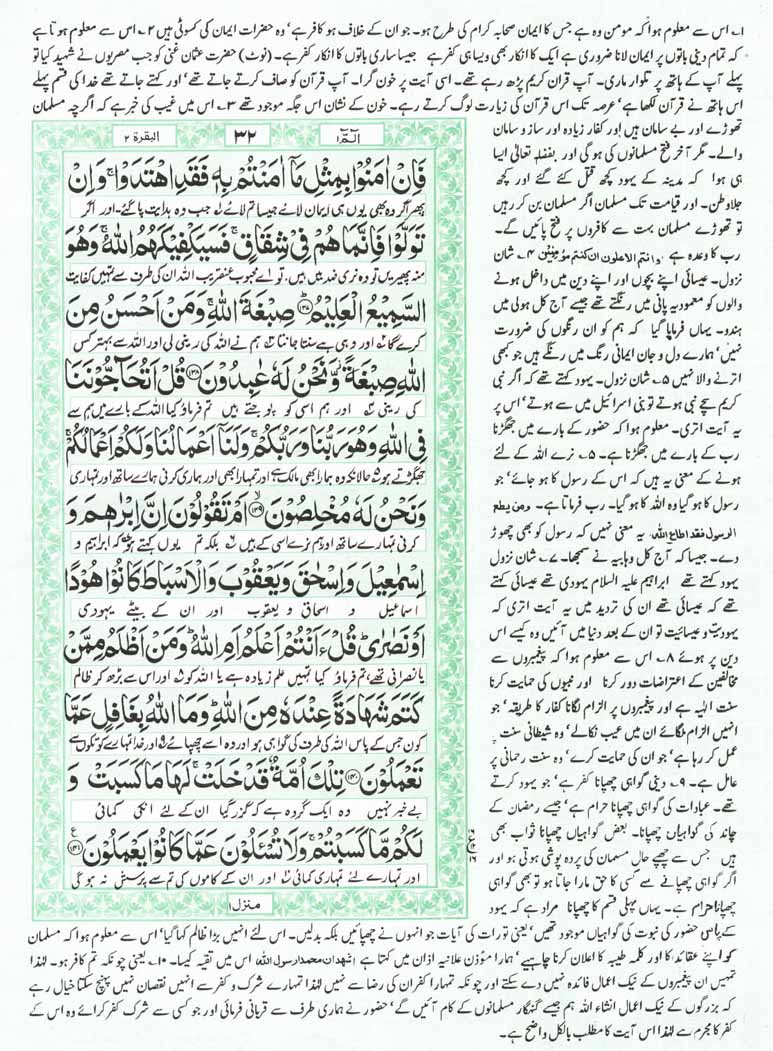 ۱؎ اس سے معلوم ہوا کہ مومن وہ ہے جس کا ایمان صحابہ کرام کی طرح ہو۔ جو ان کے خلاف ہو کافر ہے‘ وہ حضرات ایمان کی کسوٹی ہیں ۲؎ اس سے معلوم ہوتا ہے
کہ تمام دینی باتوں پر ایمان لانا ضروری ہے ایک کا انکار بھی ویسا ہی کفر ہے جیسا ساری باتوں کا انکار کفر ہے۔ (نوٹ) حضرت عثمان غنی کو جب مصریوں نے شہید کیا تو
پہلے آپ کے ہاتھ پر تلوار ماری۔ آپ قرآن کریم پڑھ رہے تھے۔ اسی آیت پر خون گرا۔ آپ قرآن کو صاف کرتے جاتے تھے‘ اور کہتے جاتے تھے خدا کی قسم پہلے
اس ہاتھ نے قرآن لکھا ہے‘ عرصہ تک اس قرآن کی زیارت لوگ کرتے رہے۔ خون کے نشان اس جگہ موجود تھے ۳؎ اس میں غیب کی خبر ہے کہ اگرچہ مسلمان
تھوڑے اور بے سامان ہیں اور کفار زیادہ اور ساز و سامان
والے۔ مگر آخر فتح مسلمانوں کی ہو گی اور بفضلہ تعالیٰ ایسا
ہی ہوا کہ مدینہ کے یہود کچھ قتل کئے گئے اور کچھ
جلاوطن۔ اور قیامت تک مسلمان اگر مسلمان بن کر رہیں
تو تھوڑے مسلمان بہت سے کافروں پر فتح پائیں گے۔
رب کا وعدہ ہے وانتم الاعلون ان کنتم مؤمنین ۴؎ شان
نزول۔ عیسائی اپنے بچوں اور اپنے دین میں داخل ہونے
والوں کو معمودیہ پانی میں رنگتے تھے جیسے آج کل ہولی میں
ہندو۔ یہاں فرمایا گیا کہ ہم کو ان رنگوں کی ضرورت
نہیں‘ ہمارے دل و جان ایمانی رنگ میں رنگے ہیں جو کبھی
اترنے والا نہیں ۵؎ شان نزول۔ یہود کہتے تھے کہ اگر نبی
کریم سچے نبی ہوتے تو بنی اسرائیل میں سے ہوتے‘ اس پر
یہ آیت اتری۔ معلوم ہوا کہ حضور کے بارے میں جھگڑنا
رب کے بارے میں جھگڑنا ہے۔ ۵؎ نرے اللہ کے لئے
ہونے کے معنی یہ ہیں کہ اس کے رسول کا ہو جائے‘ جو
رسول کا ہو گیا وہ اللہ کا ہو گیا۔ رب فرماتا ہے۔ ومن یطع
الرسول فقد اطاع اللہ، یہ معنی نہیں کہ رسول کو بھی چھوڑ
دے۔ جیسا کہ آج کل وہابیہ نے سمجھا۔ ۷؎ شان نزول
یہود کہتے تھے ابراہیم علیہ السلام یہودی تھے عیسائی کہتے
تھے کہ عیسائی تھے ان کی تردید میں یہ آیت اتری کہ
یہودیت و عیسائیت تو ان کے بعد دنیا میں آئیں وہ کیسے اس
دین پر ہوئے ۸؎ اس سے معلوم ہوا کہ پیغمبروں سے
مخالفین کے اعتراضات دور کرنا اور نبیوں کی حمایت کرنا
سنت الٰہیہ ہے اور پیغمبروں پر الزام لگانا کفار کا طریقہ‘ جو
انہیں الزام لگائے ان میں عیب نکالے‘ وہ شیطانی سنت پر
عمل کر رہا ہے‘ جو ان کی حمایت کرے‘ وہ سنت رحمانی پر
عامل ہے۔ ۹؎ دینی گواہی چھپانا کفر ہے‘ جو یہود کرتے
تھے۔ عبادات کی گواہی چھپانا حرام ہے‘ جیسے رمضان کے
چاند کی گواہیاں چھپانا۔ بعض گواہیاں چھپانا ثواب بھی
ہیں جس سے چھپے حال مسلمان کی پردہ پوشی ہوتی ہو اور
اگر گواہی چھپانے سے کسی کا حق مارا جاتا ہو تو بھی گواہی
چھپانا حرام ہے۔ یہاں پہلی قسم کا چھپانا مراد ہے کہ یہود
الٓمّٓ ۱
۳۲
البقرۃ ۲
فَاِنْ اٰمَنُوْا بِمِثْلِ مَاۤ اٰمَنْتُمْ بِهٖ فَقَدِ اهْتَدَوْاۚ وَاِنْ
پھر اگر وہ بھی یوں ہی ایمان لائے جیسا تم لائے جب تو وہ ہدایت پا گئے اور اگر
تَوَلَّوْا فَاِنَّمَا هُمْ فِیْ شِقَاقٍۚ فَسَیَكْفِیْكَهُمُ اللّٰهُۚ وَهُوَ
منہ پھیریں تو وہ نری ضد میں ہیں، تو اے محبوب عنقریب اللہ ان کی طرف سے تمہیں کفایت
السَّمِیْعُ الْعَلِیْمُؕ ۱۳۷ صِبْغَةَ اللّٰهِۚ وَمَنْ اَحْسَنُ مِنَ
کرے گا اور وہی ہے سنتا جانتا ہم نے اللہ کی رینی لی اور اللہ سے بہتر کس
اللّٰهِ صِبْغَةً٘ وَّنَحْنُ لَهٗ عٰبِدُوْنَ ۱۳۸ قُلْ اَتُحَآجُّوْنَنَا
کی رینی اور ہم اسی کو پوجتے ہیں تم فرماؤ کیا اللہ کے بارے میں ہم سے
فِی اللّٰهِ وَهُوَ رَبُّنَا وَرَبُّكُمْۚ وَلَنَاۤ اَعْمَالُنَا وَلَكُمْ اَعْمَالُكُمْۚ
جھگڑتے ہو حالانکہ وہ ہمارا بھی مالک ہے اور تمہارا بھی اور ہماری کرنی ہمارے ساتھ اور تمہاری
وَنَحْنُ لَهٗ مُخْلِصُوْنَۙ ۱۳۹ اَمْ تَقُوْلُوْنَ اِنَّ اِبْرٰهٖمَ وَ
کرنی تمہارے ساتھ اور ہم نرے اسی کے ہیں بلکہ تم یوں کہتے ہو کہ ابراہیم و
اِسْمٰعِیْلَ وَاِسْحٰقَ وَیَعْقُوْبَ وَالْاَسْبَاطَ كَانُوْا هُوْدًا
اسماعیل و اسحاق و یعقوب اور ان کے بیٹے یہودی
اَوْ نَصٰرٰیؕ قُلْ ءَاَنْتُمْ اَعْلَمُ اَمِ اللّٰهُؕ وَمَنْ اَظْلَمُ مِمَّنْ
یا نصرانی تھے، تم فرماؤ کیا تمہیں علم زیادہ ہے یا اللہ کو اور اس سے بڑھ کر ظالم
كَتَمَ شَهَادَةً عِنْدَهٗ مِنَ اللّٰهِؕ وَمَا اللّٰهُ بِغَافِلٍ عَمَّا
کون جس کے پاس اللہ کی طرف کی گواہی ہو اور وہ اسے چھپائے اور خدا تمہارے کوتکوں سے
تَعْمَلُوْنَ ۱۴۰ تِلْكَ اُمَّةٌ قَدْ خَلَتْۚ لَهَا مَا كَسَبَتْ وَ
بے خبر نہیں وہ ایک گروہ ہے کہ گزر گیا ان کے لئے انکی کمائی
لَكُمْ مَّا كَسَبْتُمْۚ وَلَا تُسْـَٔلُوْنَ عَمَّا كَانُوْا یَعْمَلُوْنَ ۱۴۱
اور تمہارے لئے تمہاری کمائی اور ان کے کاموں کی تم سے پرسش نہ ہوگی
منزل ۱
کے پاس حضور کی نبوت کی گواہیاں موجود تھیں‘ یعنی تورات کی آیات جو انہوں نے چھپائیں بلکہ بدلیں۔ اس لئے انہیں بڑا ظالم کہا گیا‘ اس سے معلوم ہوا کہ مسلمان
کو اپنے عقائد کا اور کلمہ طیبہ کا اعلان کرنا چاہیے‘ ہمارا مؤذن علانیہ اذان میں کہتا ہے اشھد ان محمدا رسول اللہ، اس میں تقیہ کیسا۔ ۱۰؎ یعنی چونکہ تم کافر ہو۔ لہٰذا
تمہیں ان پیغمبروں کے نیک اعمال فائدہ نہیں دے سکتے اور چونکہ تمہارا کفر ان کی رضا سے نہیں لہٰذا تمہارے شرک و کفر سے انہیں نقصان نہیں پہنچ سکتا خیال رہے
کہ بزرگوں کے نیک اعمال انشاء اللہ ہم جیسے گنہگار مسلمانوں کے کام آئیں گے‘ حضور نے ہماری طرف سے قربانی فرمائی اور جو کسی سے شرک کفر کرائے وہ اس کے
کفر کا مجرم ہے لہٰذا اس آیت کا مطلب بالکل واضح ہے۔